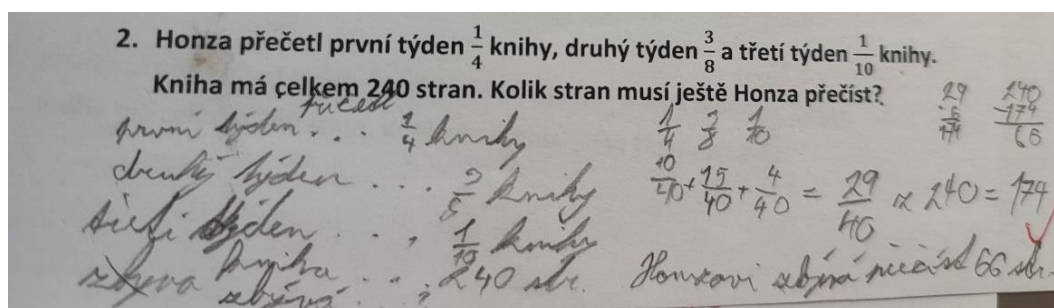 2. Honza přečetl první týden 1/4 knihy, druhý týden 3/8 a třetí týden 1/10 knihy.
Kniha má celkem 240 stran. Kolik stran musí ještě Honza přečíst?
první týden . . . 1/4 knihy
druhý týden . . . 3/8 knihy
třetí týden . . . 1/10 knihy
kniha . . . 240 str.
zbývá . . . ?
1/4 3/8 1/10
10/40 + 15/40 + 4/40 = 29/40 x 240 = 174
Honzovi zbývá přečíst 66 str.
29
· 6
174
240
-174
66